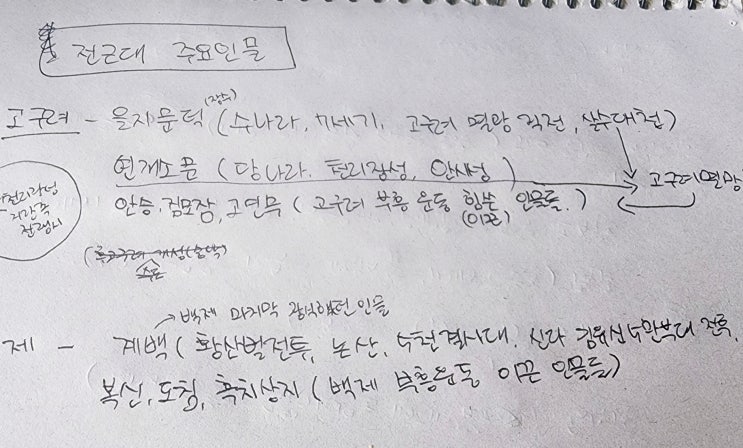 전근대 주요인물
고구려 - 을지문덕 (장수) (수나라, 7세기, 고구려 멸망 직전, 살수대첩)
연개소문 (당나라, 천리장성, 안시성) → 고구려멸망
안승, 검모잠, 고연무 (고구려 부흥 운동 힘쓴 (이끈) 인물들.)
천리장성
수도
→ 백제 마지막 인물
제 - 계백 (황산벌전투, 논산, 5천결사대, 신라 김유신 5만부대 전투,
복신, 도침, 흑치상지 (백제 부흥운동 이끈 인물들)